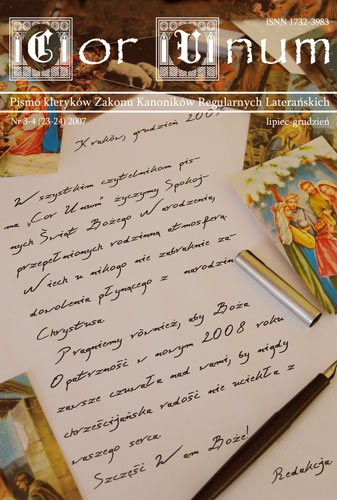 ISNN 1732-3983
Cor Unum
Pismo kleryków Zakonu Kanoników Regularnych Laterańskich
Nr 3-4 (23-24) 2007
lipiec-grudzień
Kraków, grudzień 2007
Wszystkim czytelnikom pis-
ma „Cor Unum" życzymy Spokoj-
nych Świąt Bożego Narodzenia,
przepełnionych rodzinną atmosferą.
Niech u nikogo nie zabraknie za-
dowolenia płynącego z narodzin
Chrystusa.
Pragniemy również, aby Boża
Opatrzność w nowym 2008 roku
zawsze czuwała nad wami, by nigdy
chrześcijańska radość nie uciekła z
waszego serca.
Szczęść Wam Boże!
Redakcja